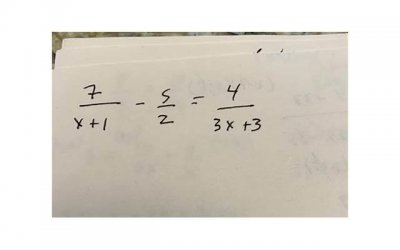 7/(x+1) - 5/2 = 4/(3x+3)